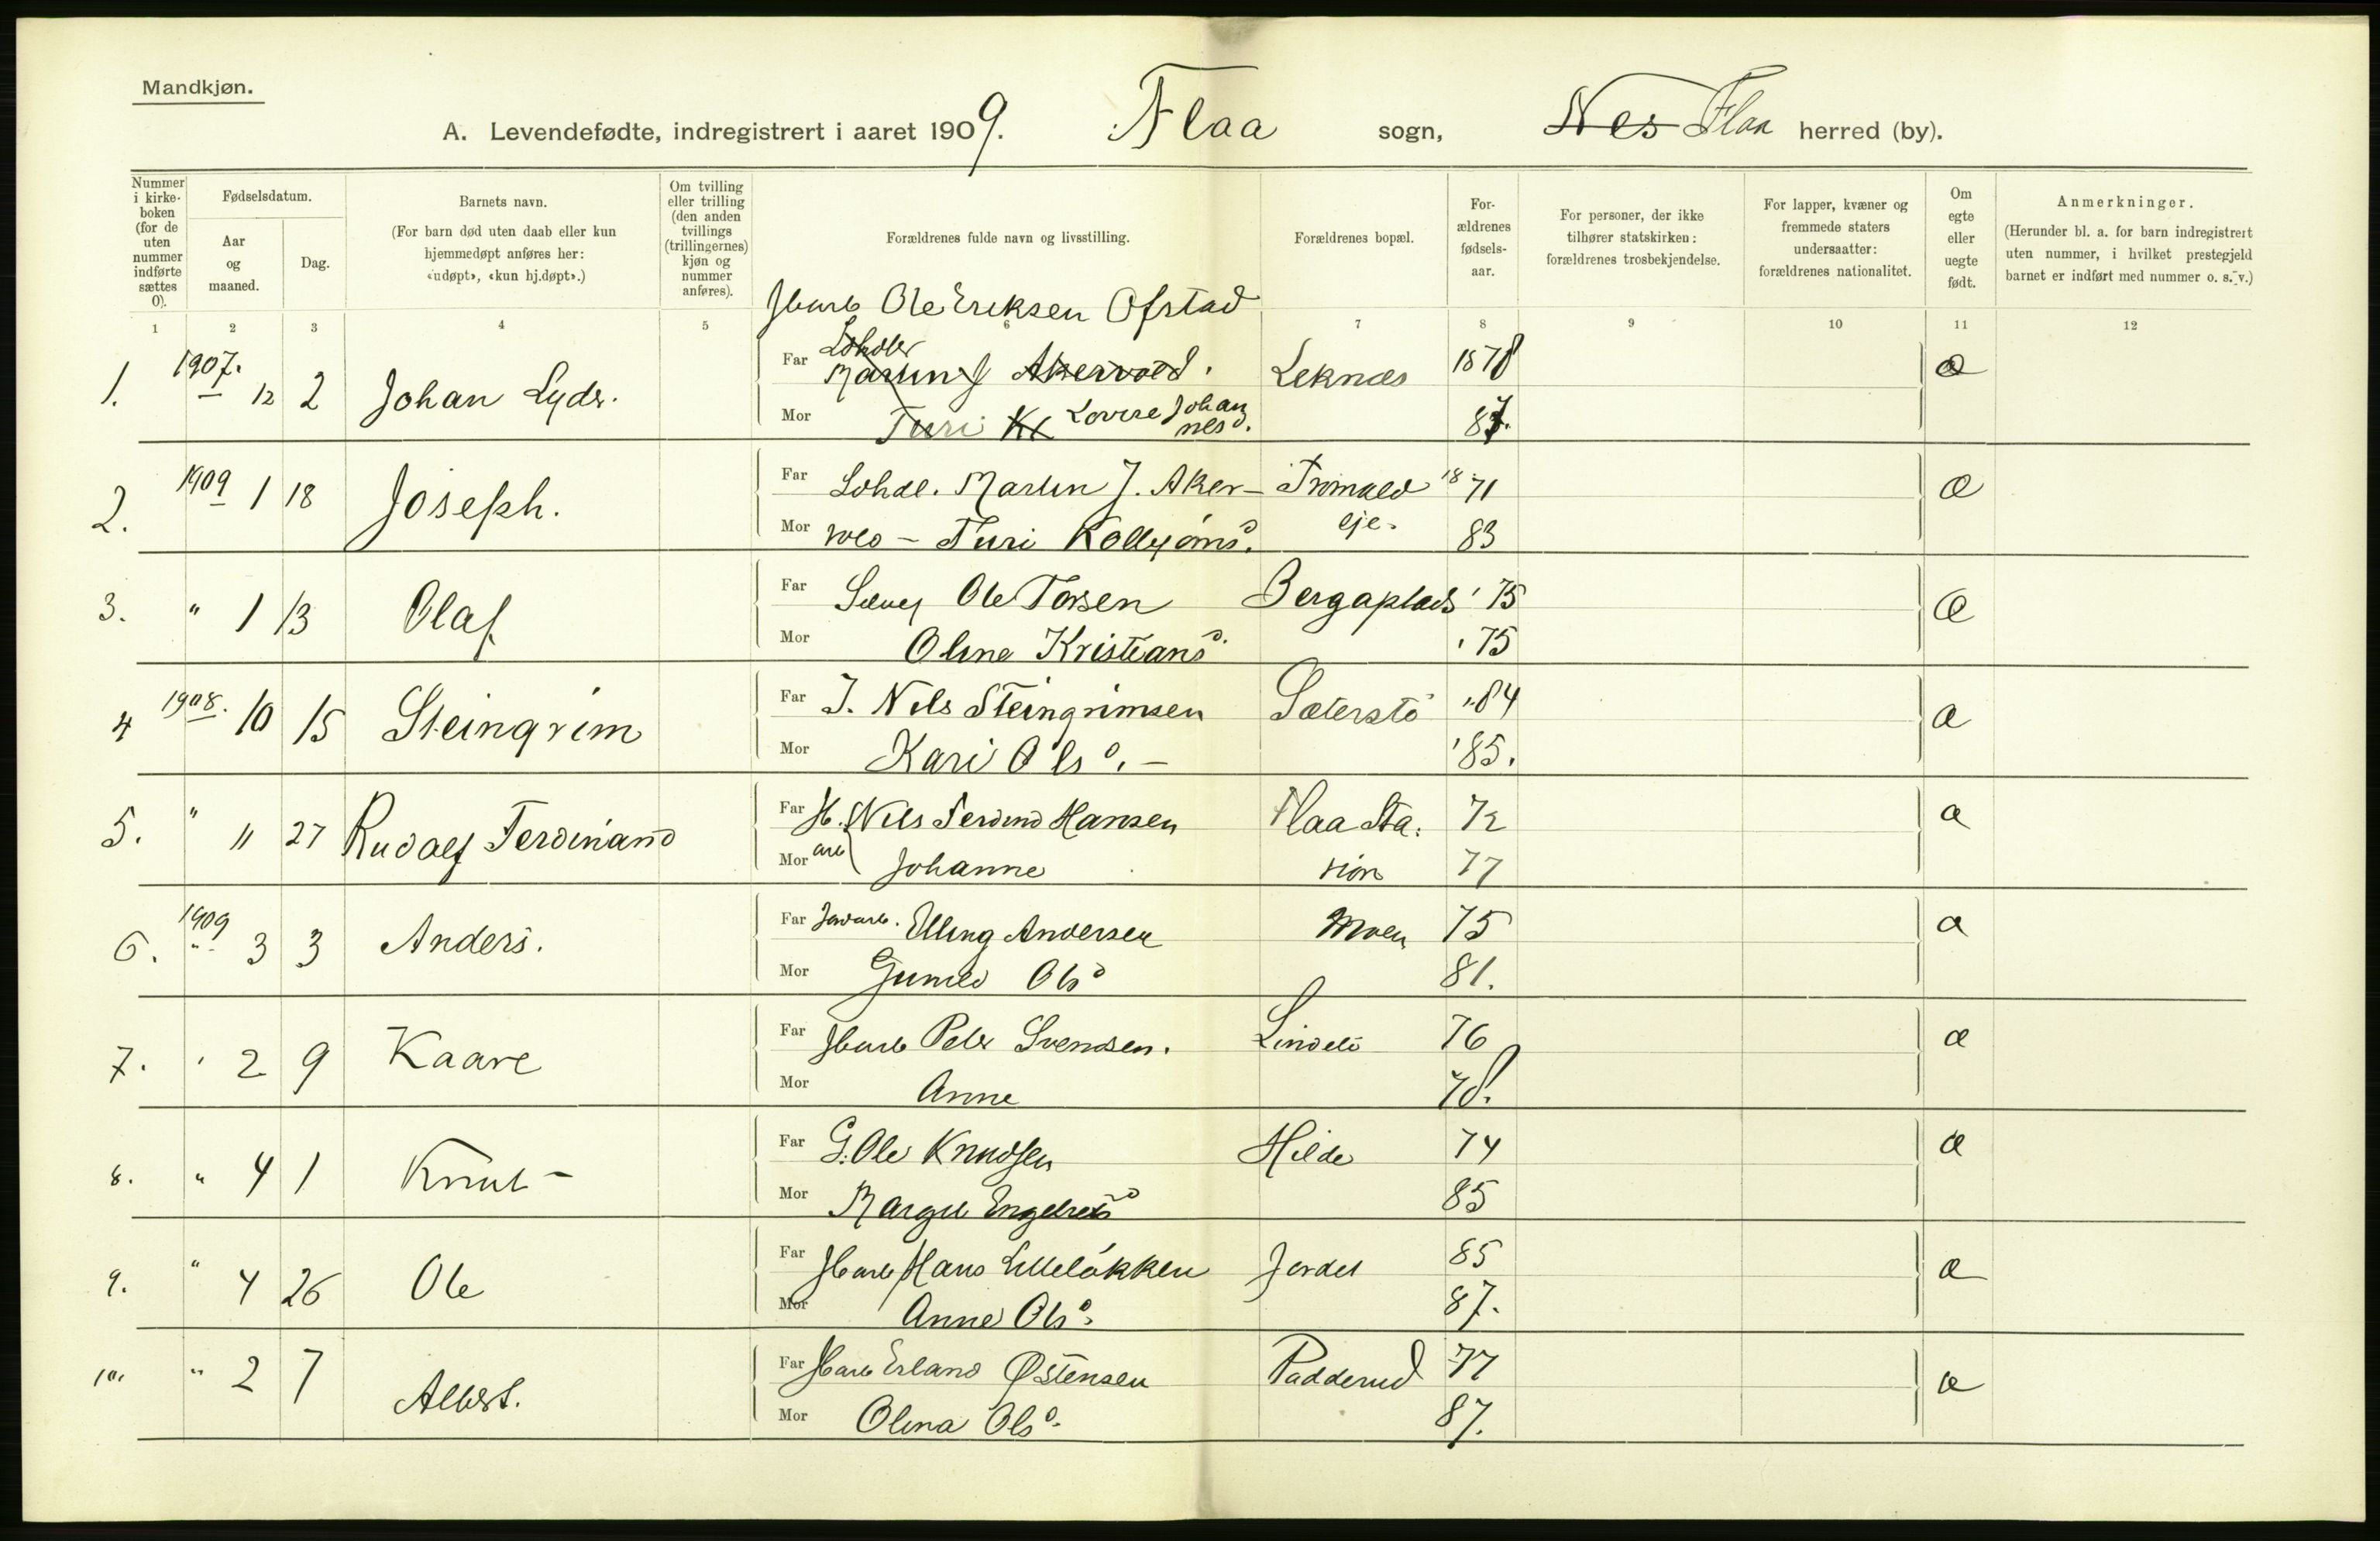 Mandkjøn.
A. Levendefødte, indregistrert i aaret 1909. Flaa sogn, Nes Flaa herred (by).
Nummer i kirkeboken (for de uten nummer indførte sættes 0).
Fødselsdatum.
Aar og maaned.
Dag.
Barnets navn.
(For barn død uten daab eller kun hjemmedøpt anføres her: «udøpt», «kun hj.døpt».)
Om tvilling eller trilling (den anden tvillings (trillingernes) kjøn og nummer anføres).
Forældrenes fulde navn og livsstilling.
Forældrenes bopæl.
Forældrenes fødselsaar.
For personer, der ikke tilhører statskirken: forældrenes trosbekjendelse.
For lapper, kvæner og fremmede staters undersaatter: forældrenes nationalitet.
Om egte eller uegte født.
Anmerkninger.
(Herunder bl. a. for barn indregistrert uten nummer, i hvilket prestegjeld barnet er indført med nummer o. s. v.)
1 2 3 4 5 6 7 8 9 10 11 12
Ole Eriksen Ofstad
1. 1907. – 12 2 Johan Lyder. Far Martin J Akervold. Leknæs 1878 æ
Mor Turi Kl Lovise Johannesd. 87.
2. 1909 1 18 Joseph. Far Martin J. Aker- 18 71 æ
Mor vold – Turi eje. 83
3. " 1 13 Olaf Far Ole Torsen Bergaplads '75 æ
Mor Oline Kristiansd. '75
4 1908. 10 15 Steingrim Far J. Nils Steingrimsen Sæterstø '84 æ
Mor Kari Olsd. – '85.
5. " 11 27 Rudolf Ferdinand Far H. Nils Ferdind Hansen Flaa Sta. 72 æ
Mor arb Johanne sion 77
6. 1909 " 3 3 Anders. Far Jovarb. Elling Andersen Moen 75 æ
Mor Gunild Olsd 81.
7. ' 2 9 Kaare Far Harb Peder Svendsen. Lindeli 76 æ
Mor Anne 78.
8. " 4 1 Knut – Far G. Ole Knudsen Hilde 74 æ
Mor Margit Engebretsd 85
9. " 4 26 Ole Far Harb Hans Lilleløkken Jordet 85 æ
Mor Anne Olsd. 87.
10. " 2 7 Albert. Far Harb Erland Østensen Padderud 77 æ
Mor Olina Olsd. 87.